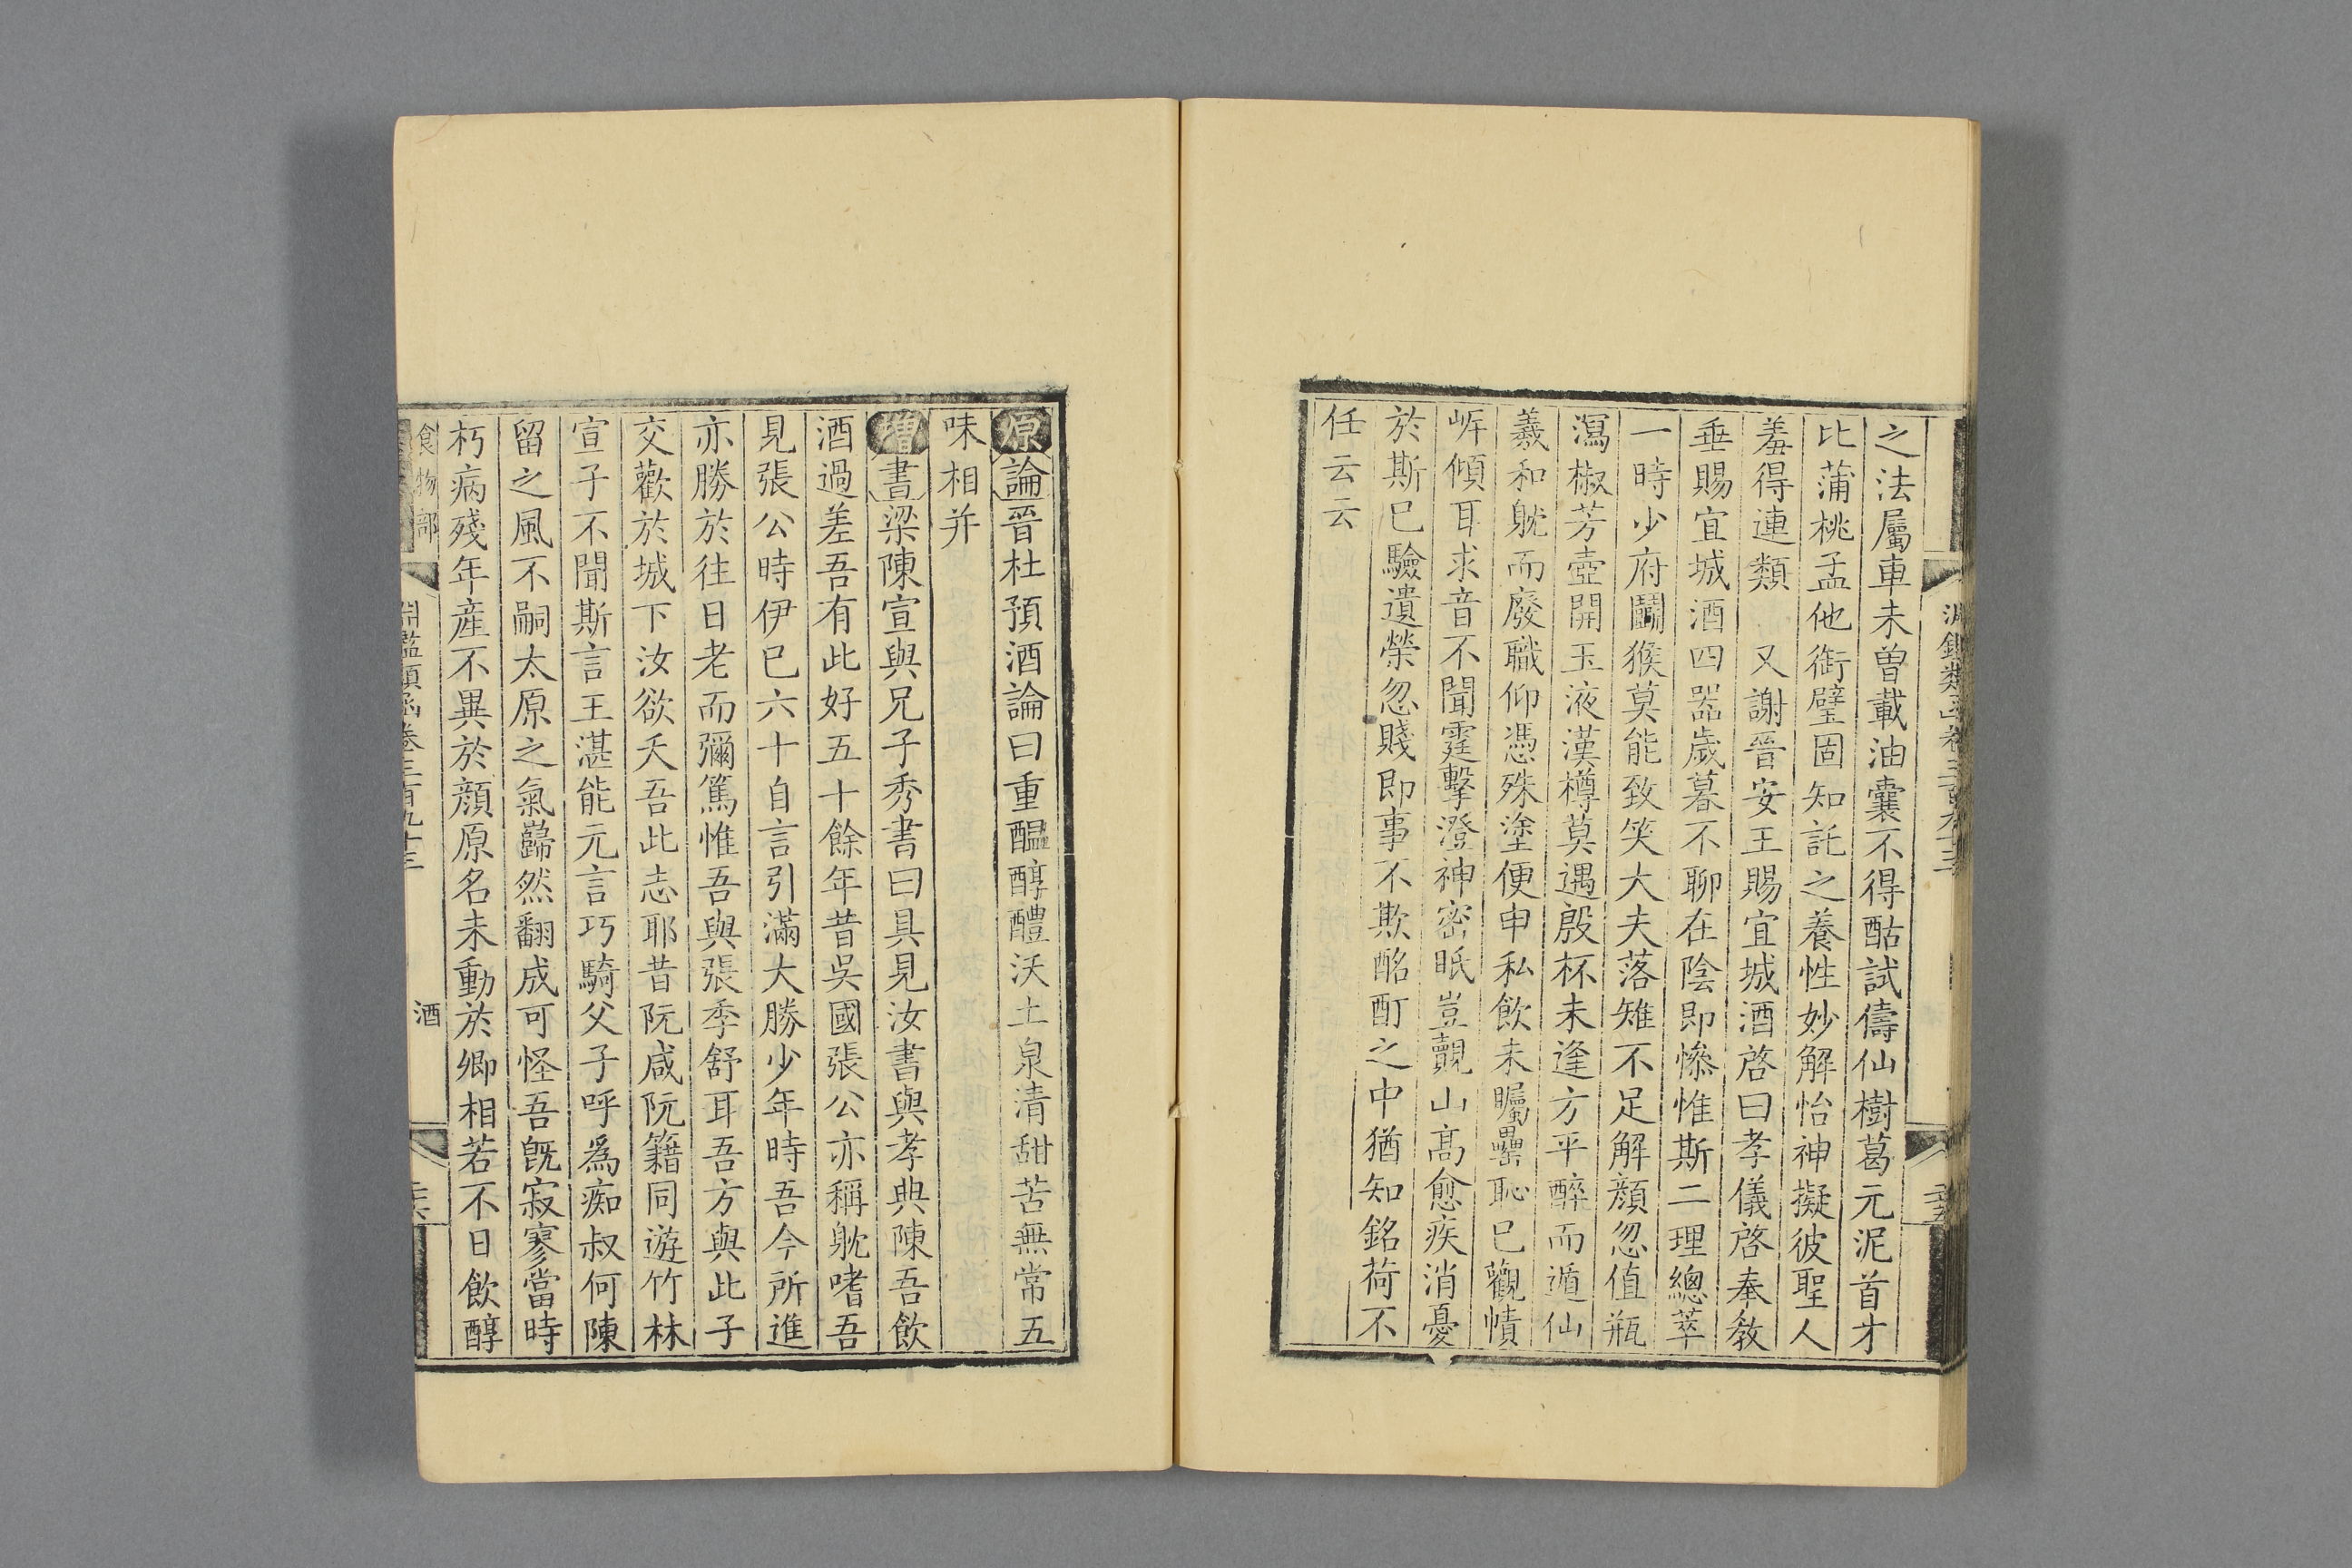 之法屬車未曽載油囊不得酤試儔仙樹葛元泥首才
比蒲桃孟他銜璧固知託之養性妙解怡神擬彼聖人
羞得連類　又謝晉安王賜宜城酒啓曰孝儀啓奉敎
垂賜宜城酒四器歲暮不聊在陰即慘惟斯二理總萃
一時少府鬭猴莫能致笑大夫落雉不足解顔忽值瓶
瀉椒芳壺開玉液漢樽莫遇殷杯未逢方平醉而遁仙
羲和躭而廢職仰憑殊塗便申私飲未矚罍恥已觀幘
岸傾耳求音不聞霆擊澄神密眂豈覿山高愈疾消憂
於斯已驗遺榮忽賤即事不欺酩酊之中猶知銘荷不
任云云
原論晉杜預酒論曰重醖醇醴沃土泉清甜苦無常五
味相并
增書梁陳宣與兄子秀書曰具見汝書與孝典陳吾飲
酒過差吾有此好五十餘年昔吳國張公亦稱躭嗜吾
見張公時伊已六十自言引滿大勝少年時吾今所進
亦勝於往日老而彌篤惟吾與張季舒耳吾方與此子
交歡於城下汝欲夭吾此志耶昔阮咸阮籍同遊竹林
宣子不聞斯言王湛能元言巧騎父子呼爲痴叔何陳
留之風不嗣太原之氣巋然翻成可怪吾旣寂寥當時
朽病殘年産不異於顔原名未動於卿相若不日飲醇
食物部　淵鑑類函卷三百九十三　酒　二六